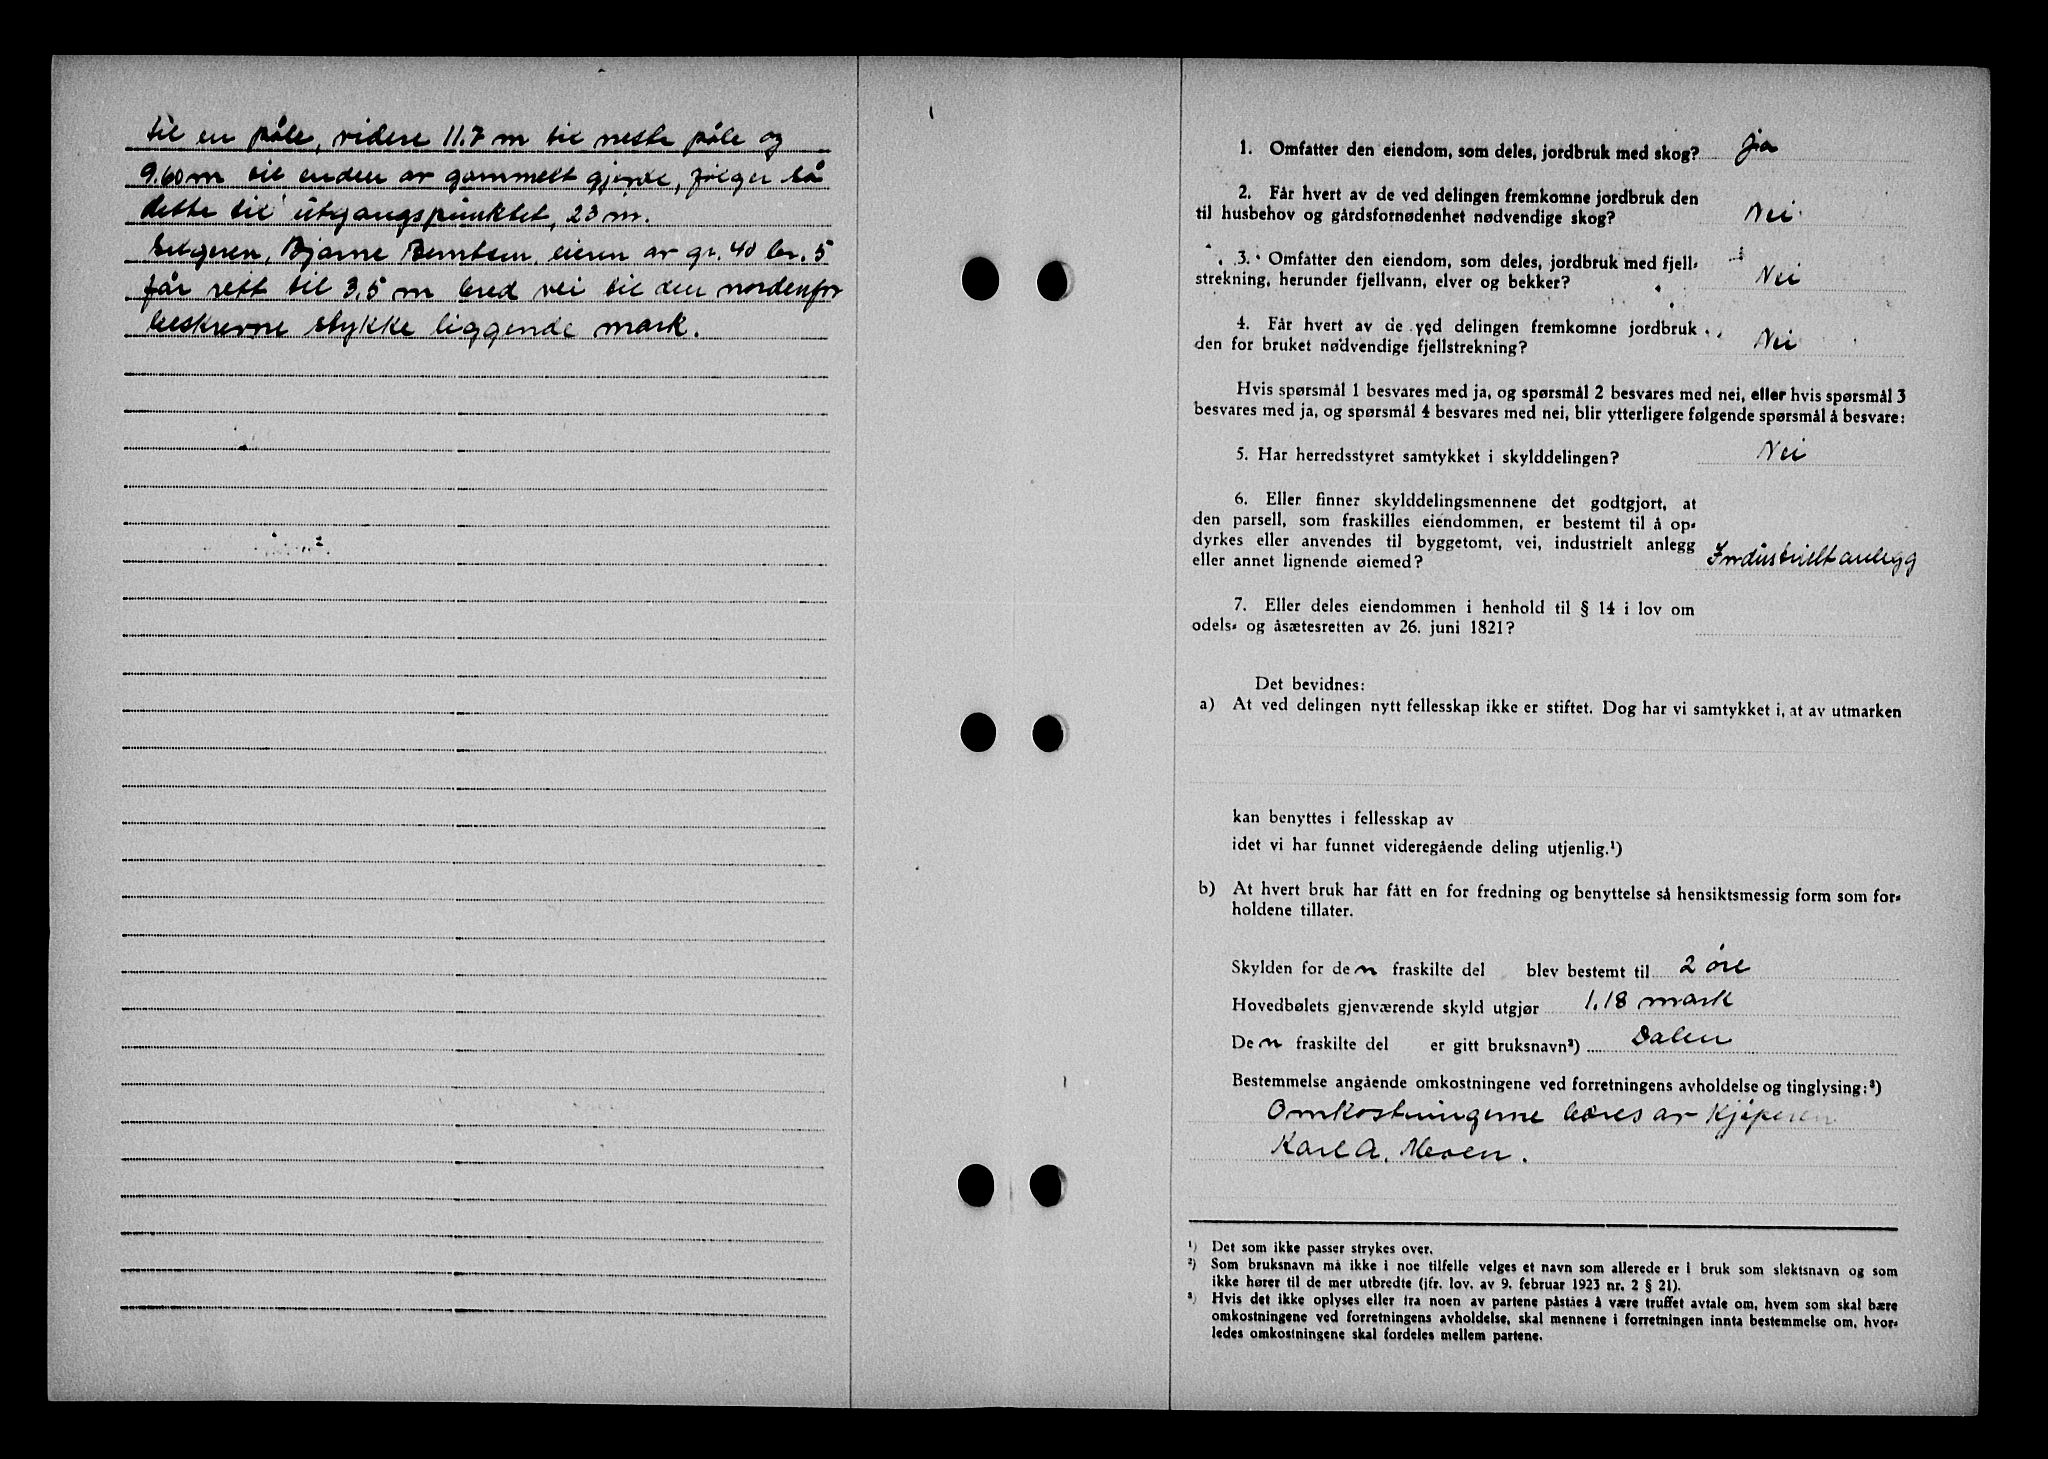 til en påle, videre 11.7 m til neste påle og
9.60 m til enden av gammelt gjerde, følger så
dette til utgangspunktet, 23 m.
Selgeren, Bjarne Berntsen, eieren av gr. 40 br. 5
får rett til 3,5 m bred vei til den nordenfor
beskrevne stykke liggende mark.
1. Omfatter den eiendom, som deles, jordbruk med skog? ja
2. Får hvert av de ved delingen fremkomne jordbruk den
til husbehov og gårdsfornødenhet nødvendige skog? Nei
3. Omfatter den eiendom, som deles, jordbruk med fjell=
strekning, herunder fjellvann, elver og bekker? Nei
4. Får hvert av de ved delingen fremkomne jordbruk
den for bruket nødvendige fjellstrekning? Nei
Hvis spørsmål 1 besvares med ja, og spørsmål 2 besvares med nei, eller hvis spørsmål 3
besvares med ja, og spørsmål 4 besvares med nei, blir ytterligere følgende spørsmål å besvare:
5. Har herredsstyret samtykket i skylddelingen? Nei
6. Eller finner skylddelingsmennene det godtgjort, at
den parsell, som fraskilles eiendommen, er bestemt til å op=
dyrkes eller anvendes til byggetomt, vei, industrielt anlegg
eller annet lignende øiemed? Industrielt anlegg
7. Eller deles eiendommen i henhold til § 14 i lov om
odels= og åsætesretten av 26. juni 1821?
Det bevidnes:
a) At ved delingen nytt fellesskap ikke er stiftet. Dog har vi samtykket i, at av utmarken
kan benyttes i fellesskap av
idet vi har funnet videregående deling utjenlig.¹)
b) At hvert bruk har fått en for fredning og benyttelse så hensiktsmessig form som for=
holdene tillater.
Skylden for den fraskilte del blev bestemt til 2 øre
Hovedbølets gjenværende skyld utgjør 1.18 mark
Den fraskilte del er gitt bruksnavn²) Dalen
Bestemmelse angående omkostningene ved forretningens avholdelse og tinglysing:³)
Omkostningerne bæres av Kjøperen
Karl A. Meoen.
¹) Det som ikke passer strykes over.
²) Som bruksnavn må ikke i noe tilfelle velges et navn som allerede er i bruk som slektsnavn og som
ikke hører til de mer utbredte (jfr. lov. av 9. februar 1923 nr. 2 § 21).
³) Hvis det ikke oplyses eller fra noen av partene påståes å være truffet avtale om, hvem som skal bære
omkostningene ved forretningens avholdelse, skal mennene i forretningen innta bestemmelse om, hvor=
ledes omkostningene skal fordeles mellem partene.